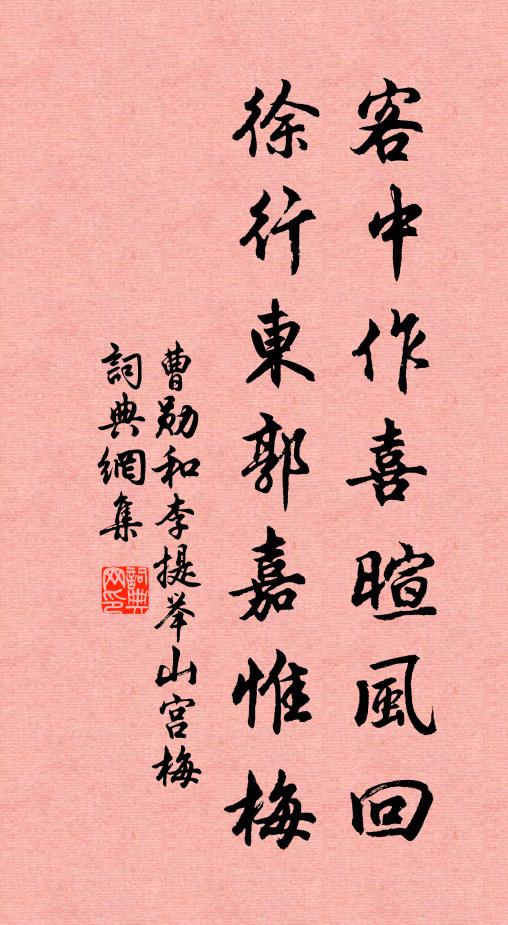 客中作喜暄風回
徐行東郭嘉惟梅
曹勛和李提举山宫梅
詞典網集
詞典网印